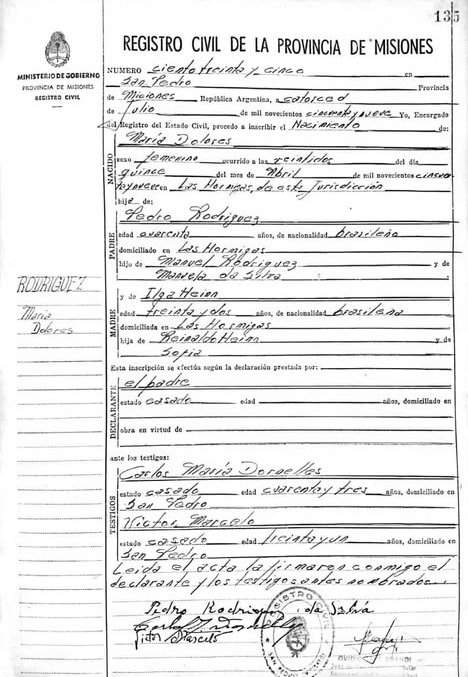 135
MINISTERIO DE GOBIERNO
PROVINCIA DE MISIONES
REGISTRO CIVIL
REGISTRO CIVIL DE LA PROVINCIA DE MISIONES
NUMERO ciento treinta y cinco en
San Pedro Provincia
de Misiones República Argentina, a
Julio de mil novecientos cincuenta y nueve Yo, Encargado
del Registro del Estado Civil, procedo a inscribir el Nacimiento de:
NACIDO
María Dolores
sexo femenino ocurrido a las del día
quince del mes de Abril de mil novecientos
en Las Hormigas, de esta Jurisdicción
hija de:
PADRE
Pedro Rodríguez
edad cuarenta años, de nacionalidad brasileña
domiciliado en Las Hormigas
hijo de Manuel Rodríguez y de
Manuela da Silva
RODRIGUEZ
María
Dolores
MADRE
y de Ilga Heinn
edad treinta y dos años, de nacionalidad brasileña
domiciliada en Las Hormigas
hija de Reinaldo Heinn y de
Sofia
Esta inscripción se efectúa según la declaración prestada por:
DECLARANTE
el padre
estado casado edad años, domiciliado en
obra en virtud de
ante los testigos:
TESTIGOS
Carlos María Dornelles
estado casado edad cuarenta y tres años, domiciliado en
San Pedro
Víctor Marcelo
estado casado edad treinta y un años, domiciliado en
San Pedro
Leída el acta la firmaron conmigo el
declarante y los testigos antes nombrados
Pedro Rodriguez da Silva
REGISTRO CIVIL